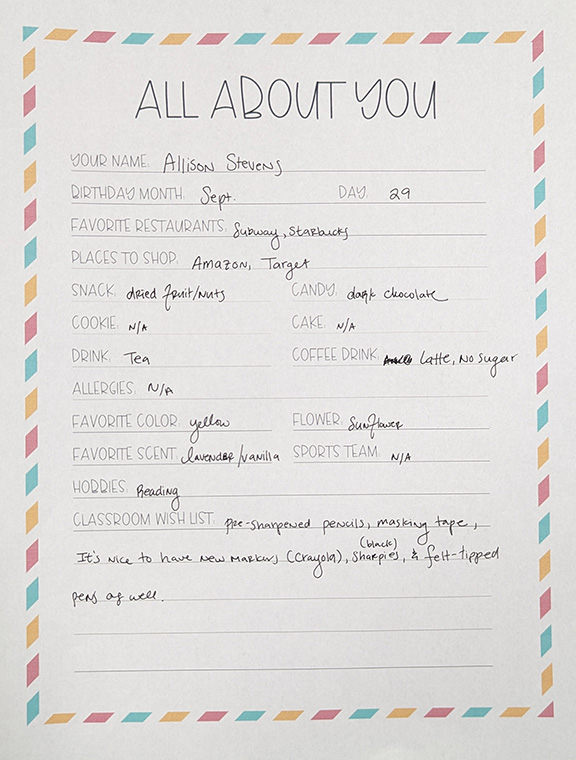 ALL ABOUT YOU
YOUR NAME: Allison Stevens
BIRTHDAY MONTH: Sept. DAY: 29
FAVORITE RESTAURANTS: Subway, Starbucks
PLACES TO SHOP: Amazon, Target
SNACK: dried fruit/nuts CANDY: dark chocolate
COOKIE: N/A CAKE: N/A
DRINK: Tea COFFEE DRINK: Latte, No sugar
ALLERGIES: N/A
FAVORITE COLOR: yellow FLOWER: Sunflower
FAVORITE SCENT: lavender/vanilla SPORTS TEAM: N/A
HOBBIES: Reading
CLASSROOM WISH LIST: pre-sharpened pencils, masking tape,
(black)
It's nice to have new markers (Crayola), Sharpies, & felt-tipped
pens as well.